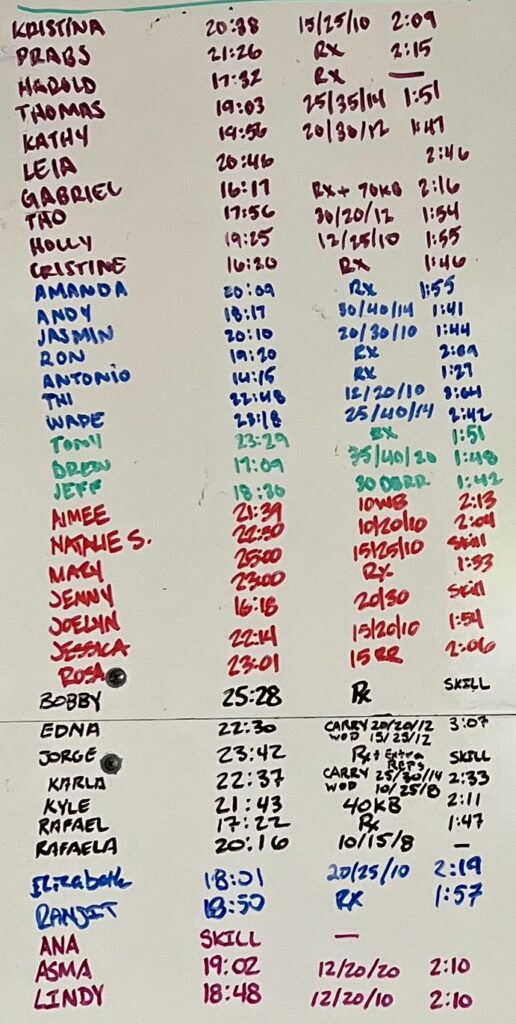 KRISTINA 20:38 15/25/10 2:09
PRABS 21:26 RX 2:15
HAROLD 17:32 RX —
THOMAS 19:03 25/35/14 1:51
KATHY 19:56 20/30/12 1:47
LEIA 20:46 2:46
GABRIEL 16:17 RX + 70KB 2:16
THO 17:56 30/20/12 1:54
HOLLY 19:25 12/25/10 1:55
CRISTINE 16:20 RX 1:46
AMANDA 20:09 RX 1:55
ANDY 18:17 30/40/14 1:41
JASMIN 20:10 20/30/10 1:44
RON 19:20 RX 2:09
ANTONIO 14:15 RX 1:27
THI 22:48 12/20/10 3:04
WADE 23:18 25/40/14 2:42
TOMY 23:29 RX 1:51
DREW 17:09 35/40/20 1:48
JEFF 18:30 30 DBRR 1:42
AIMEE 21:39 10WB 2:13
NATALIE S. 22:30 10/20/10 2:04
MARY 25:00 15/25/10 Skill
JENNY 23:00 RX 1:33
JOELYN 16:18 20/30 Skill
JESSICA 22:14 15/20/10 1:54
ROSA 23:01 15 RR 2:06
BOBBY 25:28 RX SKILL
EDNA 22:30 CARRY 20/20/12 3:07
WOD 15/25/12
JORGE 23:42 RX + Extra SKILL
REPS
KARLA 22:37 CARRY 25/30/14 2:33
WOD 10/25/8
KYLE 21:43 40KB 2:11
RAFAEL 17:22 Rx 1:47
RAFAELA 20:16 10/15/8 —
Elizabeth 18:01 20/25/10 2:19
RANJIT 18:50 RX 1:57
ANA SKILL —
ASMA 19:02 12/20/20 2:10
LINDY 18:48 12/20/10 2:10